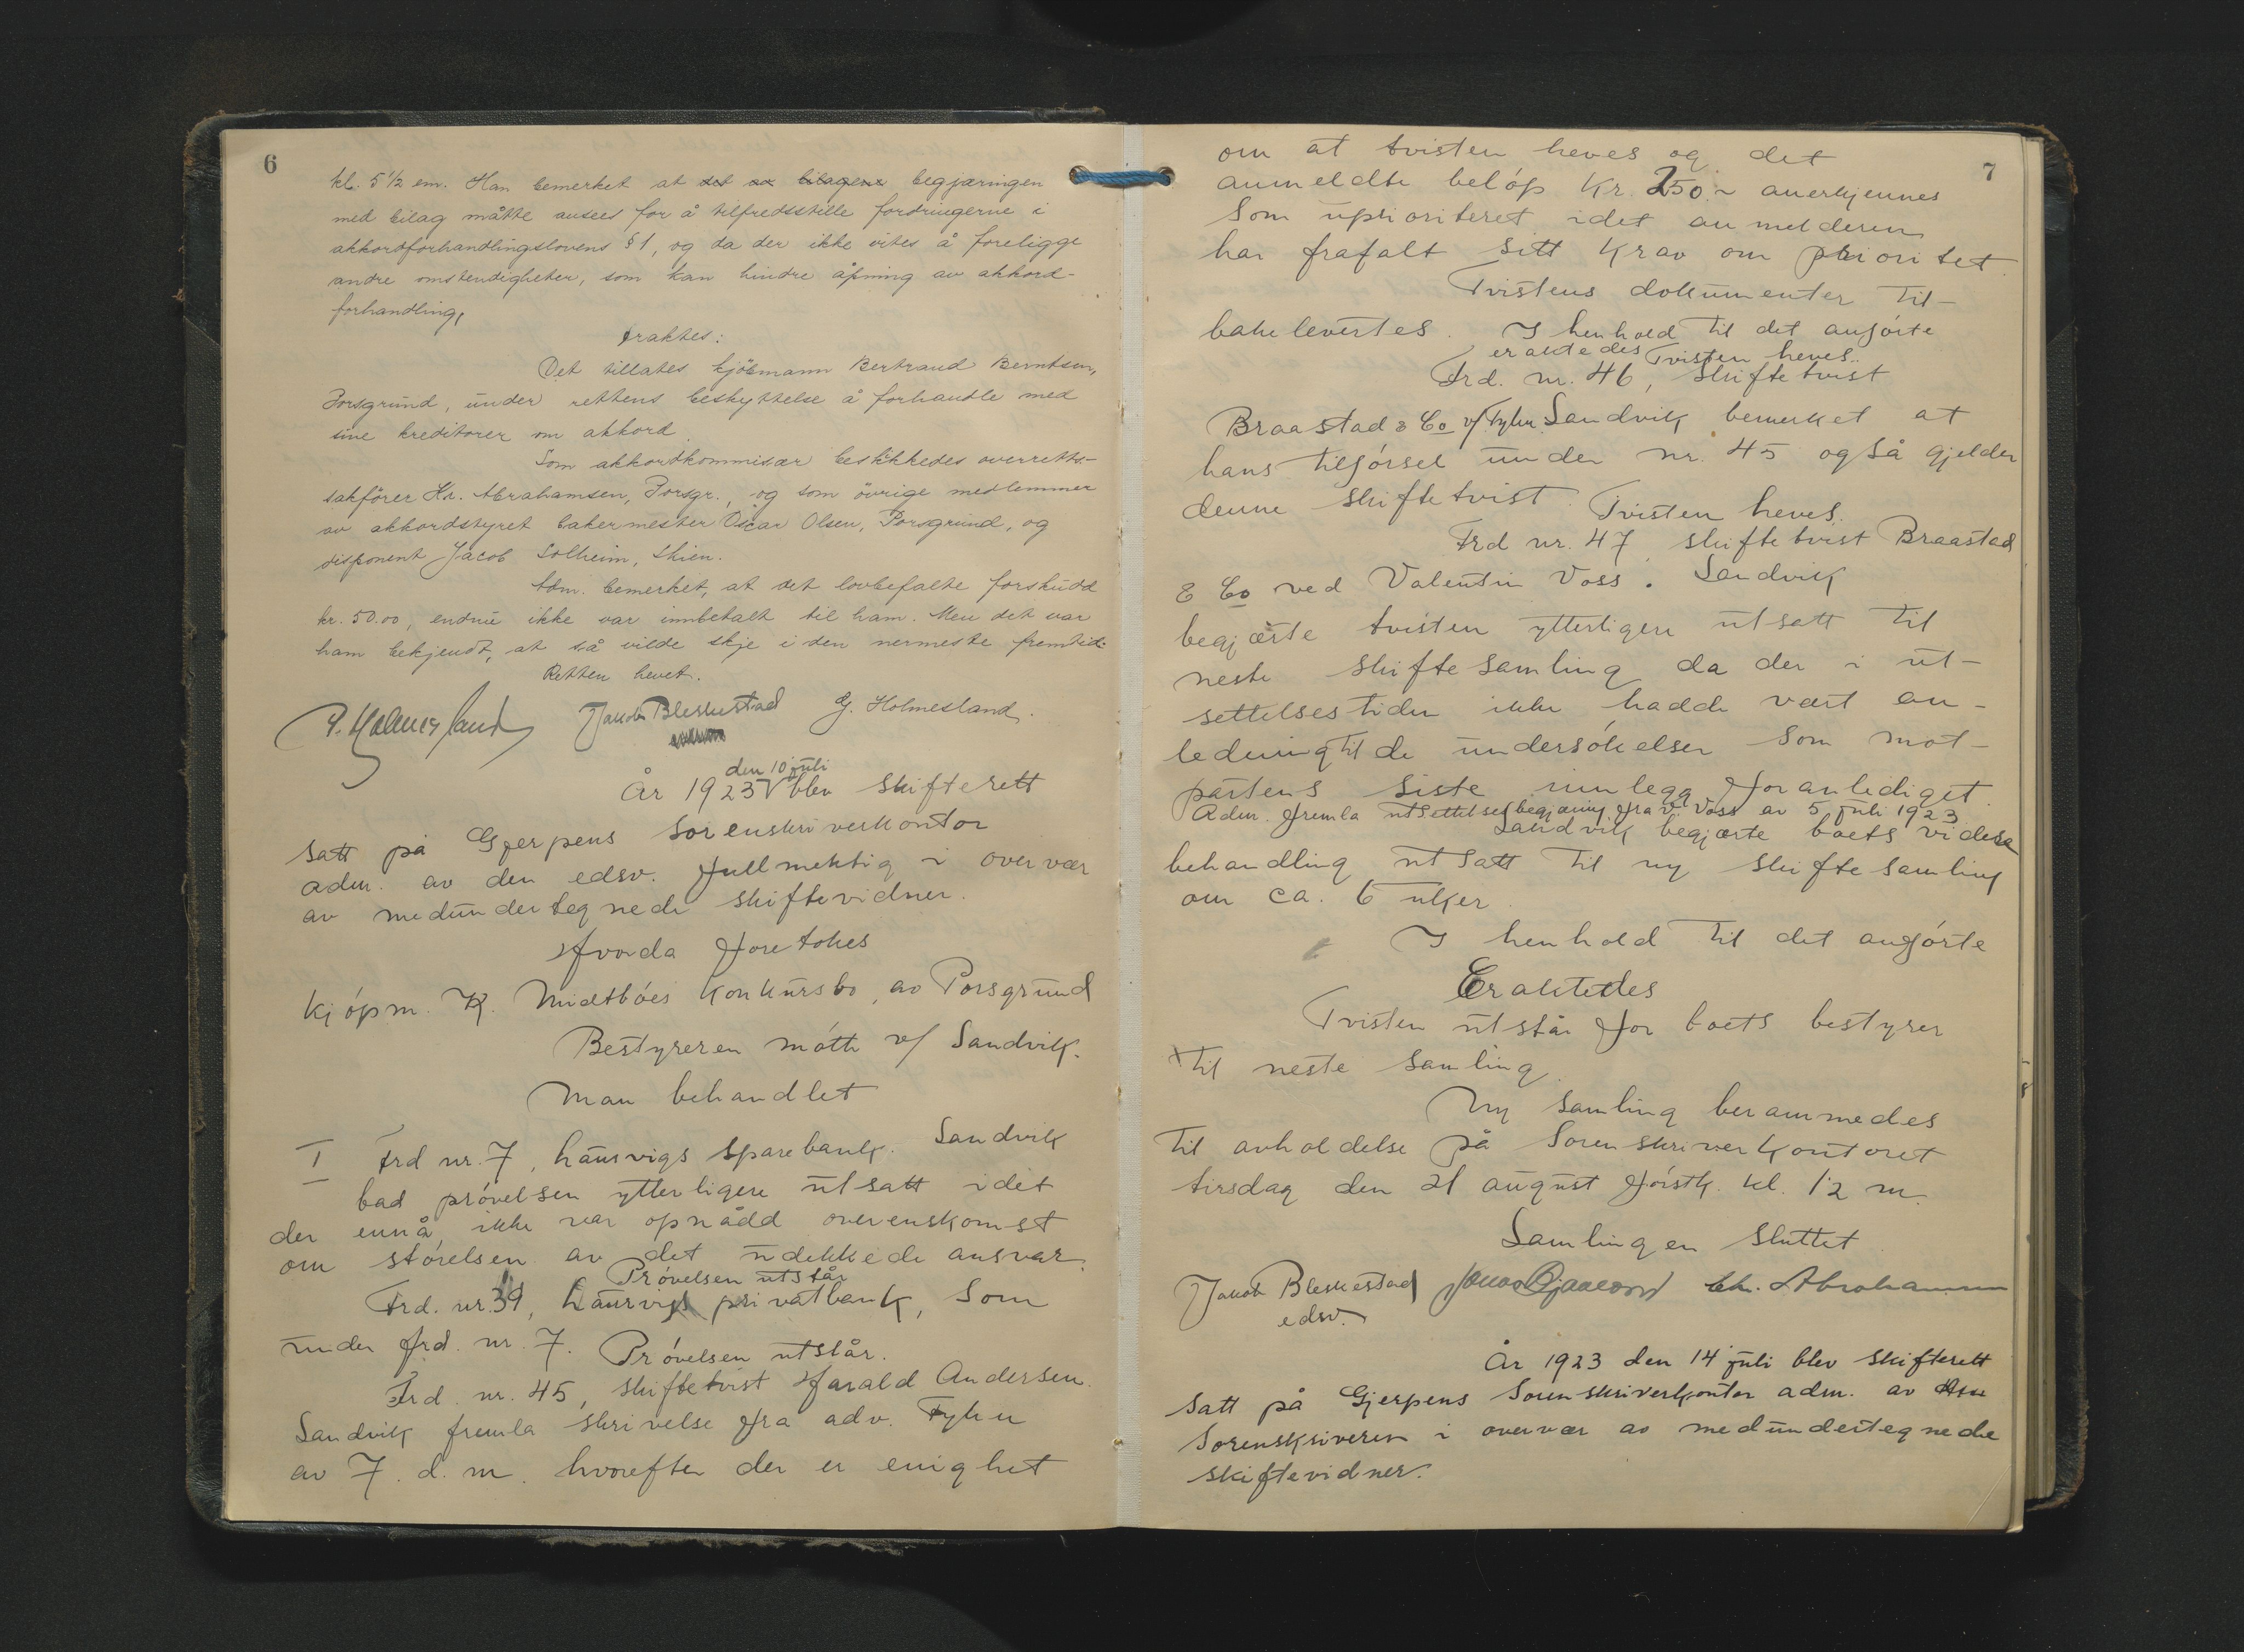 6
kl. 5 1/2 em. Han bemerket at det av bilagene begjæringen
med bilag måtte ansees for å tilfredsstille fordringerne i
akkordforhandlingslovens § 1, og da der ikke vites å foreligge
andre omstendigheter, som kan hindre åpning av akkord-
forhandling,
traktes:
Det tillates kjöbmann Bertrand Berntsen,
Porsgrund, under rettens beskyttelse å forhandle med
sine kreditorer om akkord.
Som akkordkommisær beskikkedes overretts-
sakförer Kr. Abrahamsen, Porsgr., og som övrige medlemmer
av akkordstyret bakermester Oscar Olsen, Porsgrund, og
disponent Jacob Solheim, Skien.
Adm. bemerket, at det lovbefalte forskudd
kr. 50.00, endnu ikke var innbetalt til ham. Men det var
ham bekjendt, at så vilde skje i den nermeste fremtid.
Retten hevet.
P. Holmesland Jakob Bleskestad G. Holmesland.
den 10 juli
År 1923 V blev skifterett
satt på Gjerpens sorenskriverkontor
adm. av den edsv. fullmektig i overvær
av medundertegnede skiftevidner.
Hvorda foretokes
Kjópm. K. Midtbóes konkursbo, av Porsgrund
Bestyreren mótte v/ Sandvik.
Man behandlet
I Frd nr. 7, Laurvigs Sparebank. Sandvik
bad próvelsen ytterligere utsatt idet
der ennå ikke var opnådd overenskomst
om stórelsen av det udekkede ansvar.
Próvelsen utstår
Frd. nr. 39, Laurvigs privatbank, som
under frd. nr. 7. Próvelsen utstår.
Frd. nr. 45, skiftetvist Harald Andersen.
Sandvik fremla skrivelse fra adv. Tyhn
av 7. d. m. hvorefter der er enighet
7
om at tvisten heves og det
anmeldte belóp Kr. 250.- anerkjennes
som uprioriteret idet anmelderen
har frafalt sitt krav om prioritet.
Tvistens dokumenter til-
bakelevertes. I henhold til det anfórte
eraktedes Tvisten heves.
Frd. nr. 46, skiftetvist
Braastad & Co v/ Tyhn. Sandvik bemerket at
hans tilfórsel under nr. 45 også gjelder
denne skiftetvist. Tvisten heves.
Frd nr. 47, skiftetvist Braastad
& Co ved Valentin Voss. Sandvik
begjærte tvisten ytterligere utsatt til
neste skiftesamling da der i ut-
settelsestiden ikke hadde vært an-
ledning til de undersókelser som mot-
partens siste innlegg foranlediget.
Adm. fremla utsettelsesbegjæring fra V. Voss av 5 juli 1923
Sandvik begjærte boets videre
behandling utsatt til ny skiftesamling
om ca. 6 uker.
I henhold til det anfórte
Eraktedes
Tvisten utstår for boets bestyrer
til neste samling.
Ny samling berammedes
til avholdelse på Sorenskriverkontoret
tirsdag den 21 august fórstk. kl. 12 m.
Samlingen sluttet
Jakob Bleskestad Chr. Abrahamsen
edsv.
År 1923 den 14 juli blev skifterett
satt på Gjerpens Sorenskriverkontor adm. av
Sorenskriveren i overvær av medundertegnede
skiftevidner.